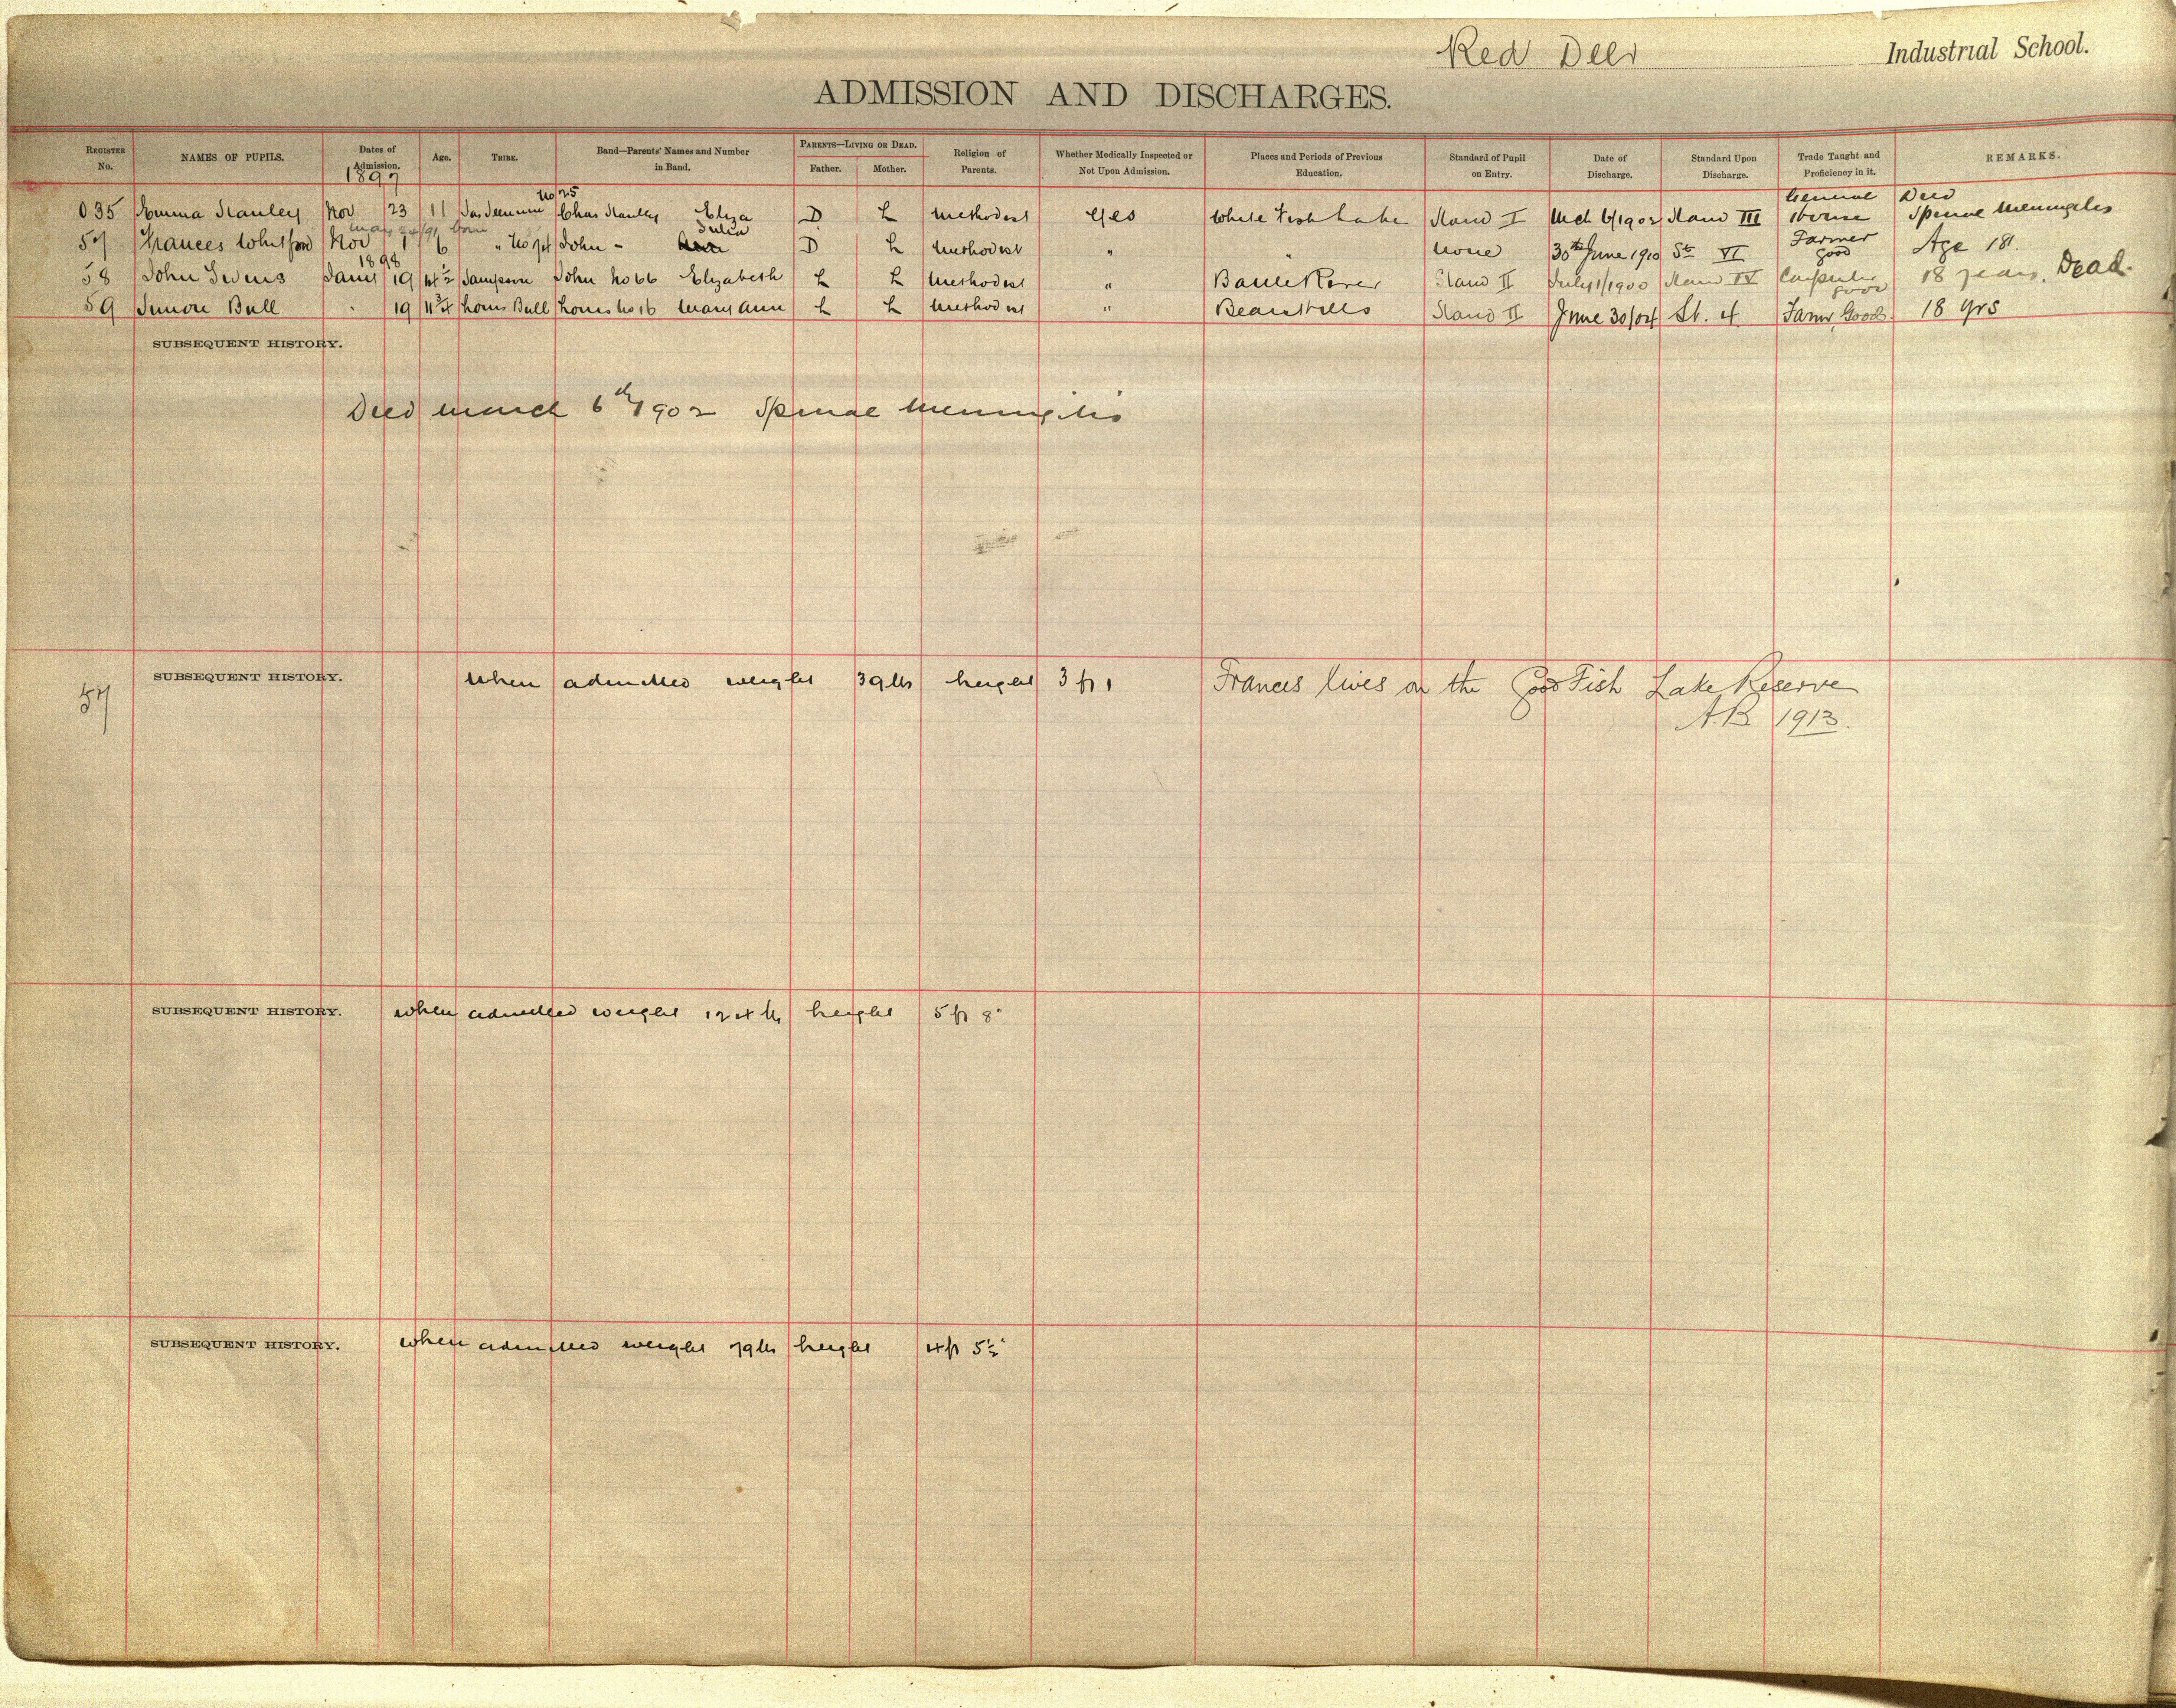 Red Deer Industrial School.
ADMISSION AND DISCHARGES.
REGISTER No. NAMES OF PUPILS. Dates of Admission. 1897 Age. TRIBE. Band—Parents' Names and Number in Band. PARENTS—LIVING OR DEAD. Father. Mother. Religion of Parents. Whether Medically Inspected or Not Upon Admission. Places and Periods of Previous Education. Standard of Pupil on Entry. Date of Discharge. Standard Upon Discharge. Trade Taught and Proficiency in it. REMARKS.
No 25 General Died
035 Emma Stanley Nov 23 11 Chas Stanley Eliza D L Methodist Yes White Fish Lake Stand I Mch 6/1902 Stand III House Spinal Meningitis
May 24/91 born Julia Farmer
57 Frances Whitford Nov 1 6 " John - D L Methodist " " None 30th June 1910 St VI good Age 18.
1898
58 John 19 Sampson John No 66 Elizabeth L L Methodist " Battle River Stand II July 1/1900 Stand IV Carpenter good 18 years. Dead.
59 Bull 19 Bull No 16 Mary Ann L L Methodist " Bears Hills Stand II June 30/04 St. 4 Farmr Good 18 yrs
SUBSEQUENT HISTORY.
Died March 6th 1902 Spinal Meningitis
57 SUBSEQUENT HISTORY. When admitted weight 39 lbs height 3 ft 1 Frances lives on the Good Fish Lake Reserve
A.B. 1913.
SUBSEQUENT HISTORY. When admitted weight 124 lbs height 5 ft 8"
SUBSEQUENT HISTORY. When admitted weight 79 lbs height 4 ft 5½"